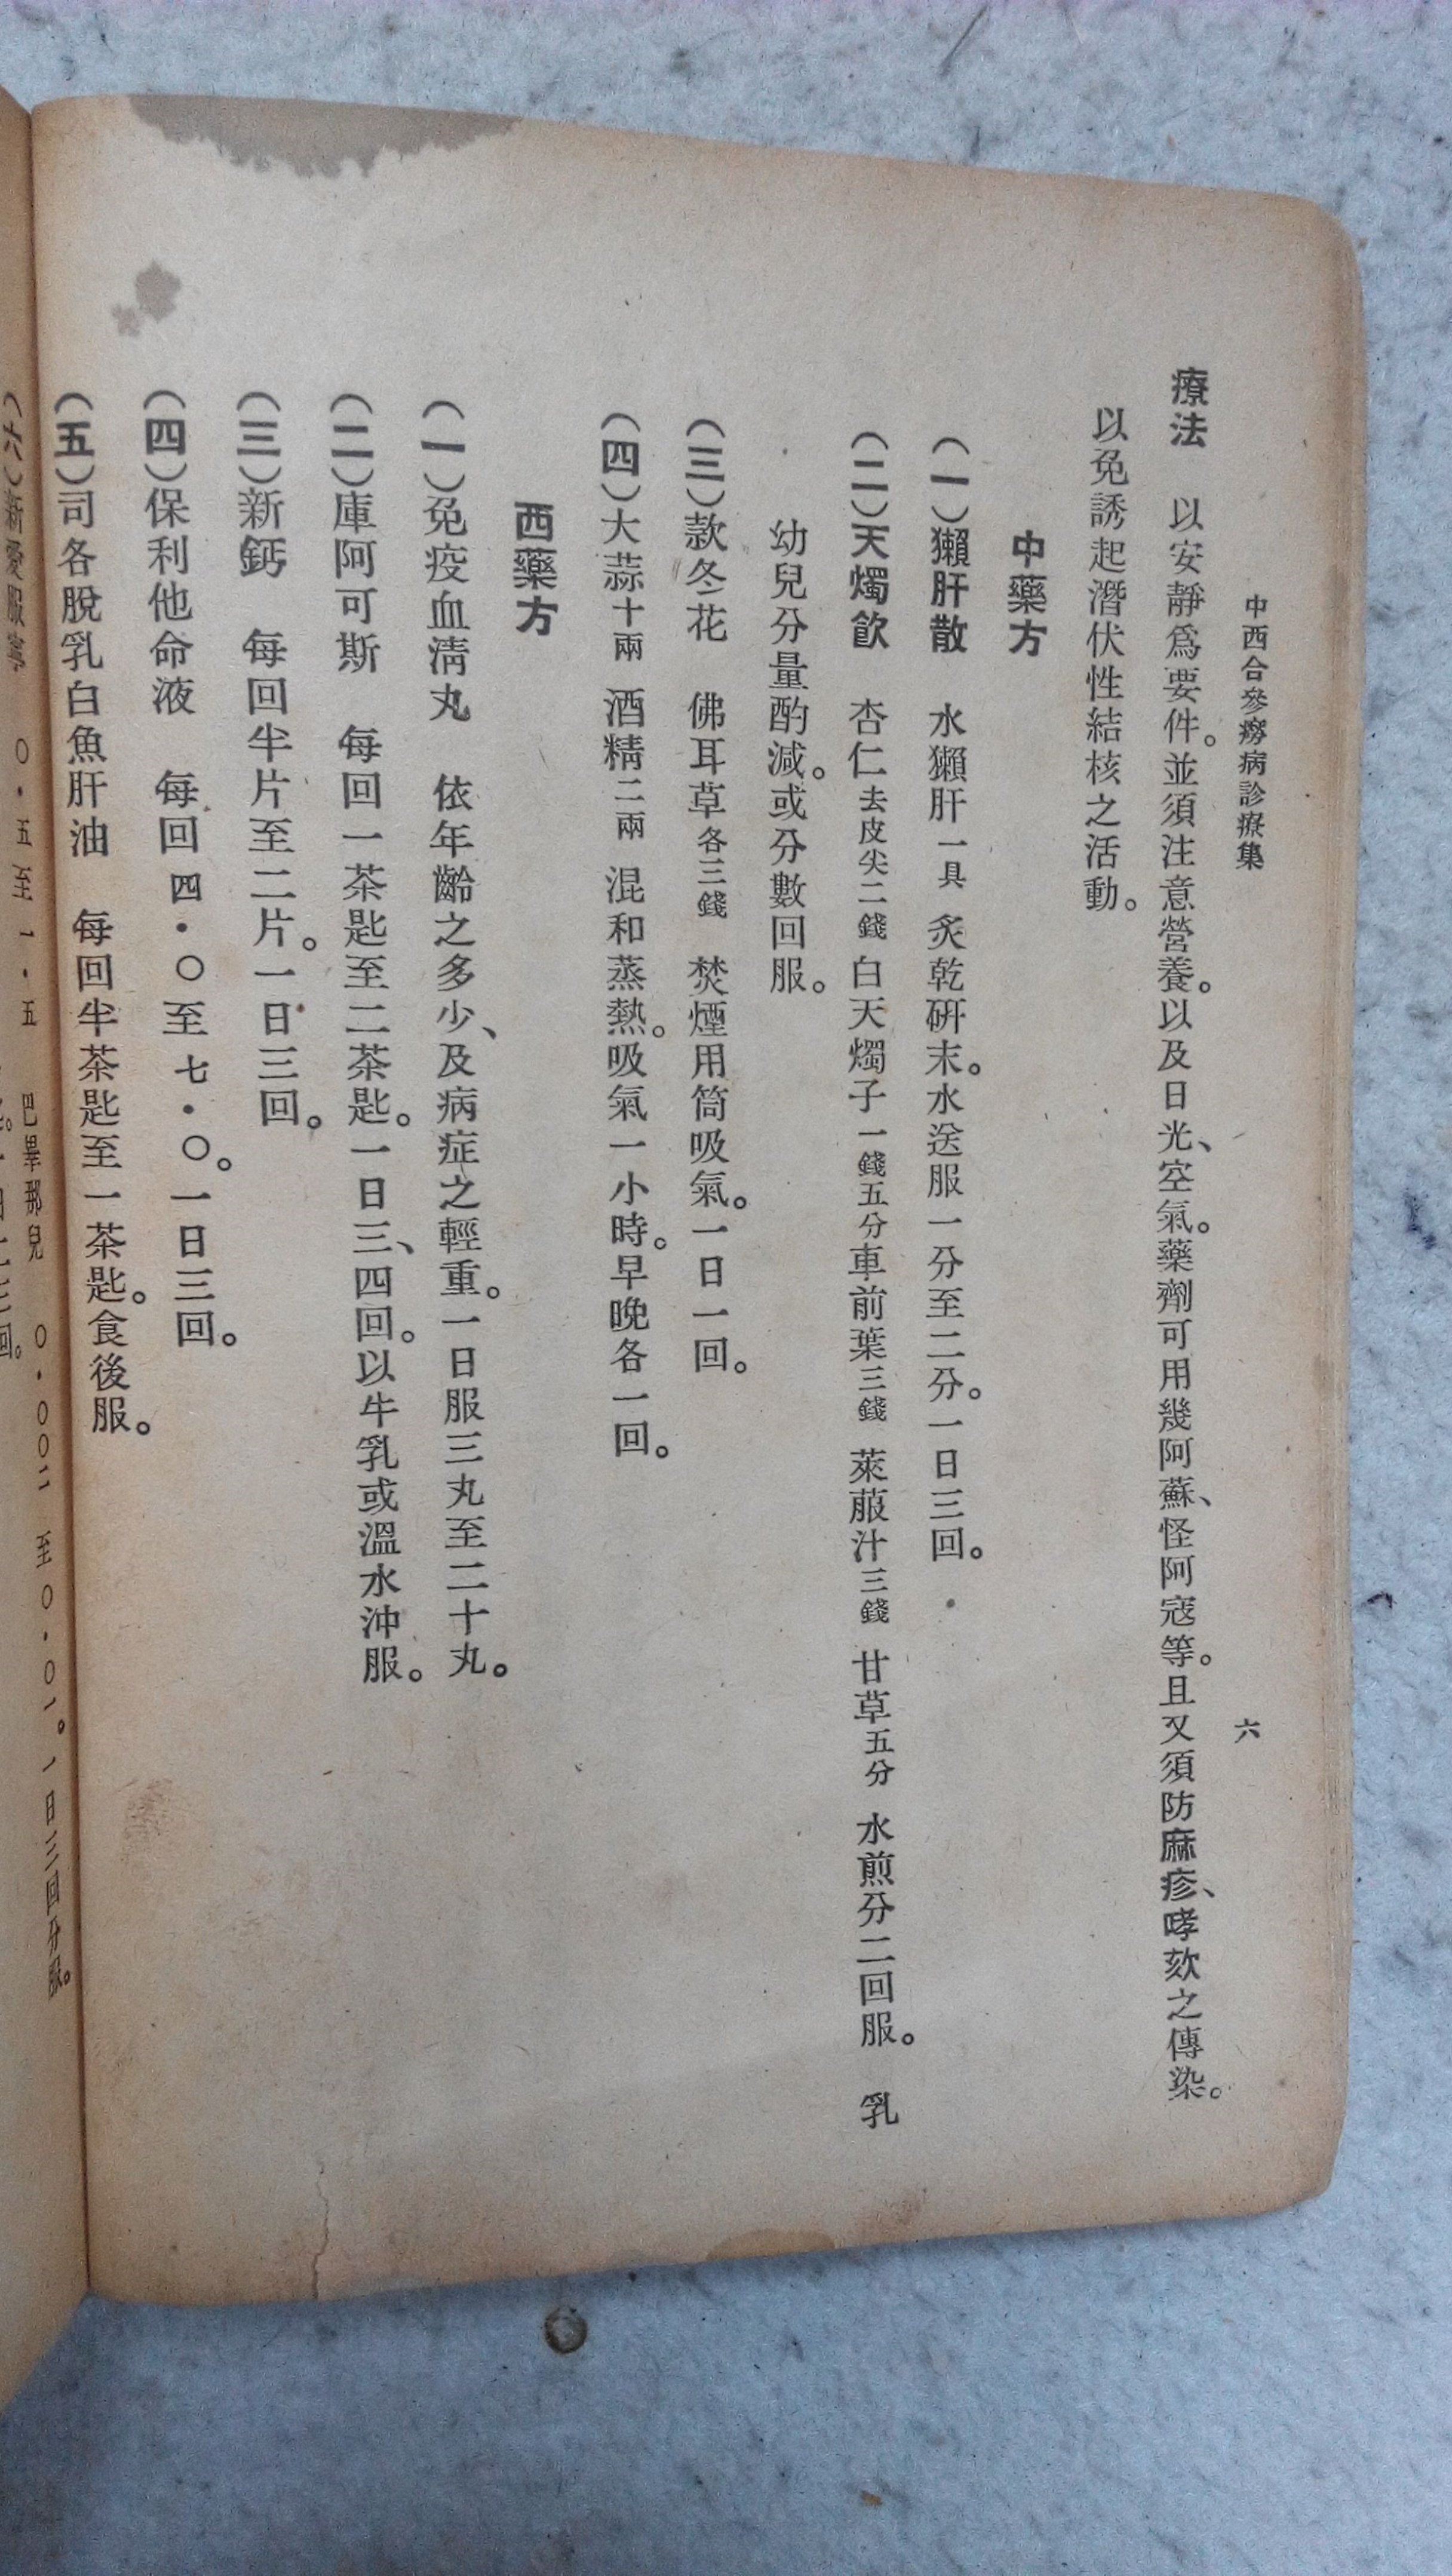 中西合參癆病診療集
六
療法　以安靜爲要件。並須注意營養。以及日光、空氣。藥劑可用幾阿蘇、怪阿寇等。且又須防麻疹、哮欬之傳染。
以免誘起潛伏性結核之活動。
中藥方
（一）獺肝散　水獺肝一具　炙乾硏末。水送服一分至二分。一日三回。
（二）天燭飮　杏仁去皮尖二錢白天燭子一錢五分車前葉三錢　萊菔汁三錢　甘草五分　水煎分二回服。　乳
幼兒分量酌減。或分數回服。
（三）款冬花　佛耳草各三錢　焚煙用筒吸氣。一日一回。
（四）大蒜十兩　酒精二兩　混和蒸熱。吸氣一小時。早晚各一回。
西藥方
（一）免疫血淸丸　依年齡之多少、及病症之輕重。一日服三丸至二十丸。
（二）庫阿可斯　每回一茶匙至二茶匙。一日三、四回。以牛乳或溫水沖服。
（三）新鈣　每回半片至二片。一日三回。
（四）保利他命液　每回四・〇至七・〇。一日三回。
（五）司各脫乳白魚肝油　每回半茶匙至一茶匙。食後服。
（六）新愛服寧　〇・五至一・五　巴畢那兒　〇・〇〇二至〇・〇一。一日三回分服。